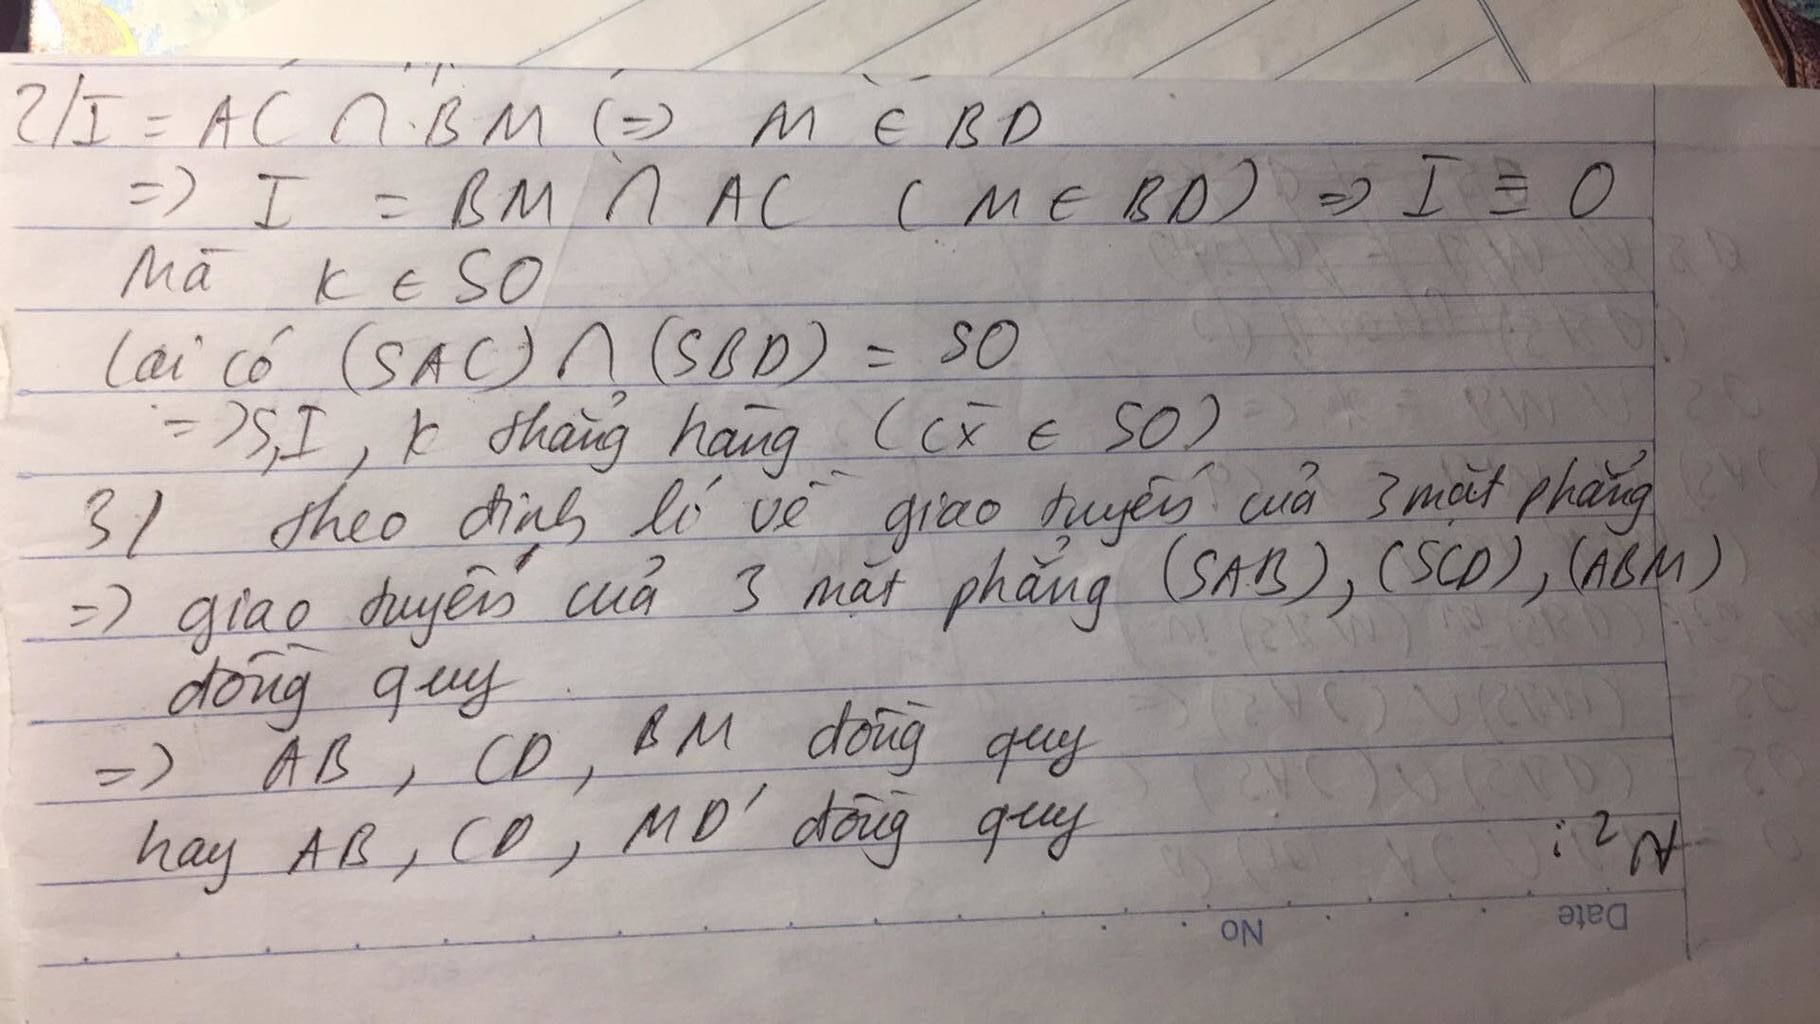 2/ I = AC ∩ BM (=) M ∈ BD
=) I = BM ∩ AC ( M ∈ BD) => I ≡ O
Mà K ∈ SO
Lại có (SAC) ∩ (SBD) = SO
=> S, I, K thẳng hàng (cx ∈ SO)
3/ theo định lí về giao tuyến của 3 mặt phẳng
=) giao tuyến của 3 mặt phẳng (SAB), (SCD), (ABM)
đồng quy
=) AB, CD, BM đồng quy
hay AB, CD, MD' đồng quy
No
Date